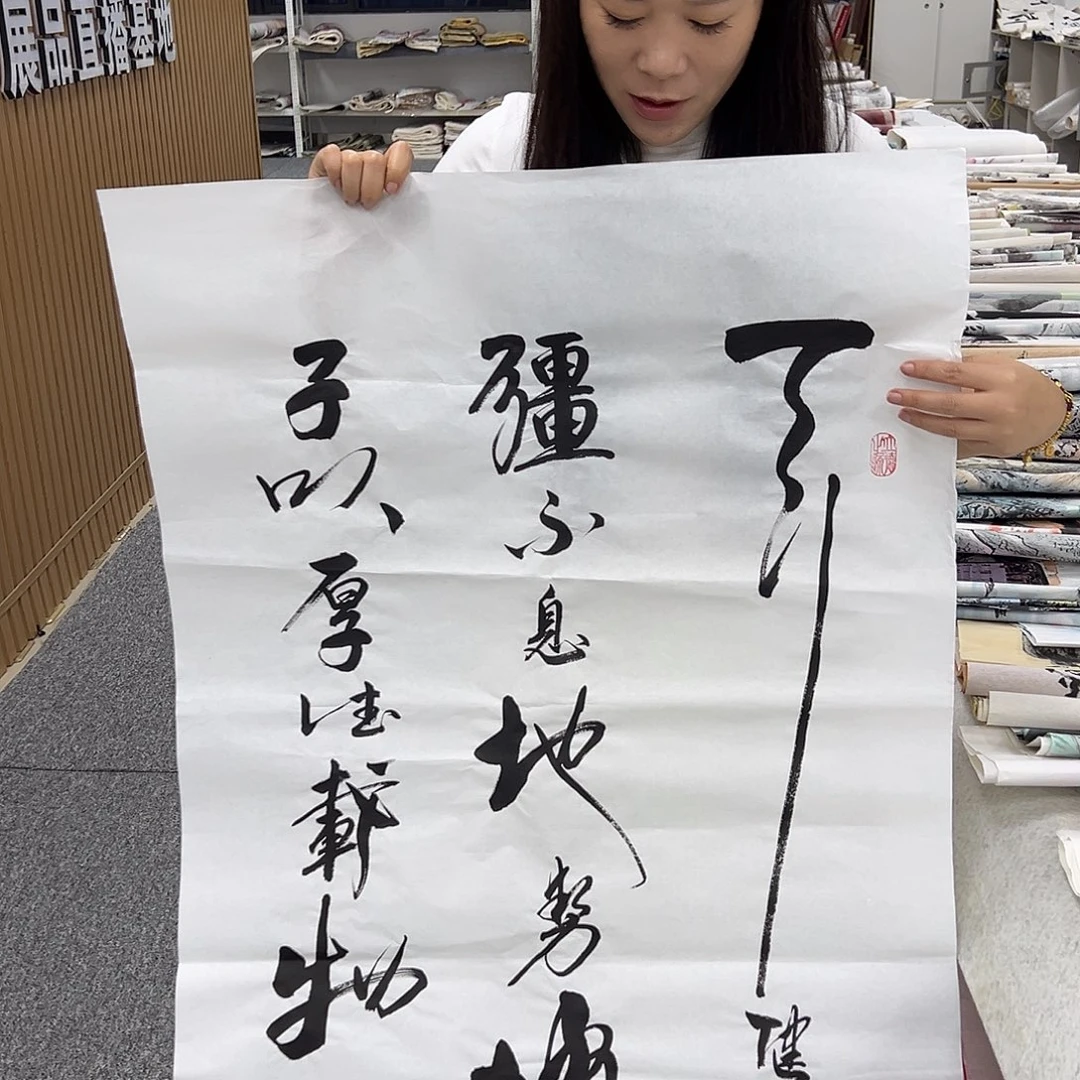 展品直播基地
天行健
彊不息地勢
子以厚德載物